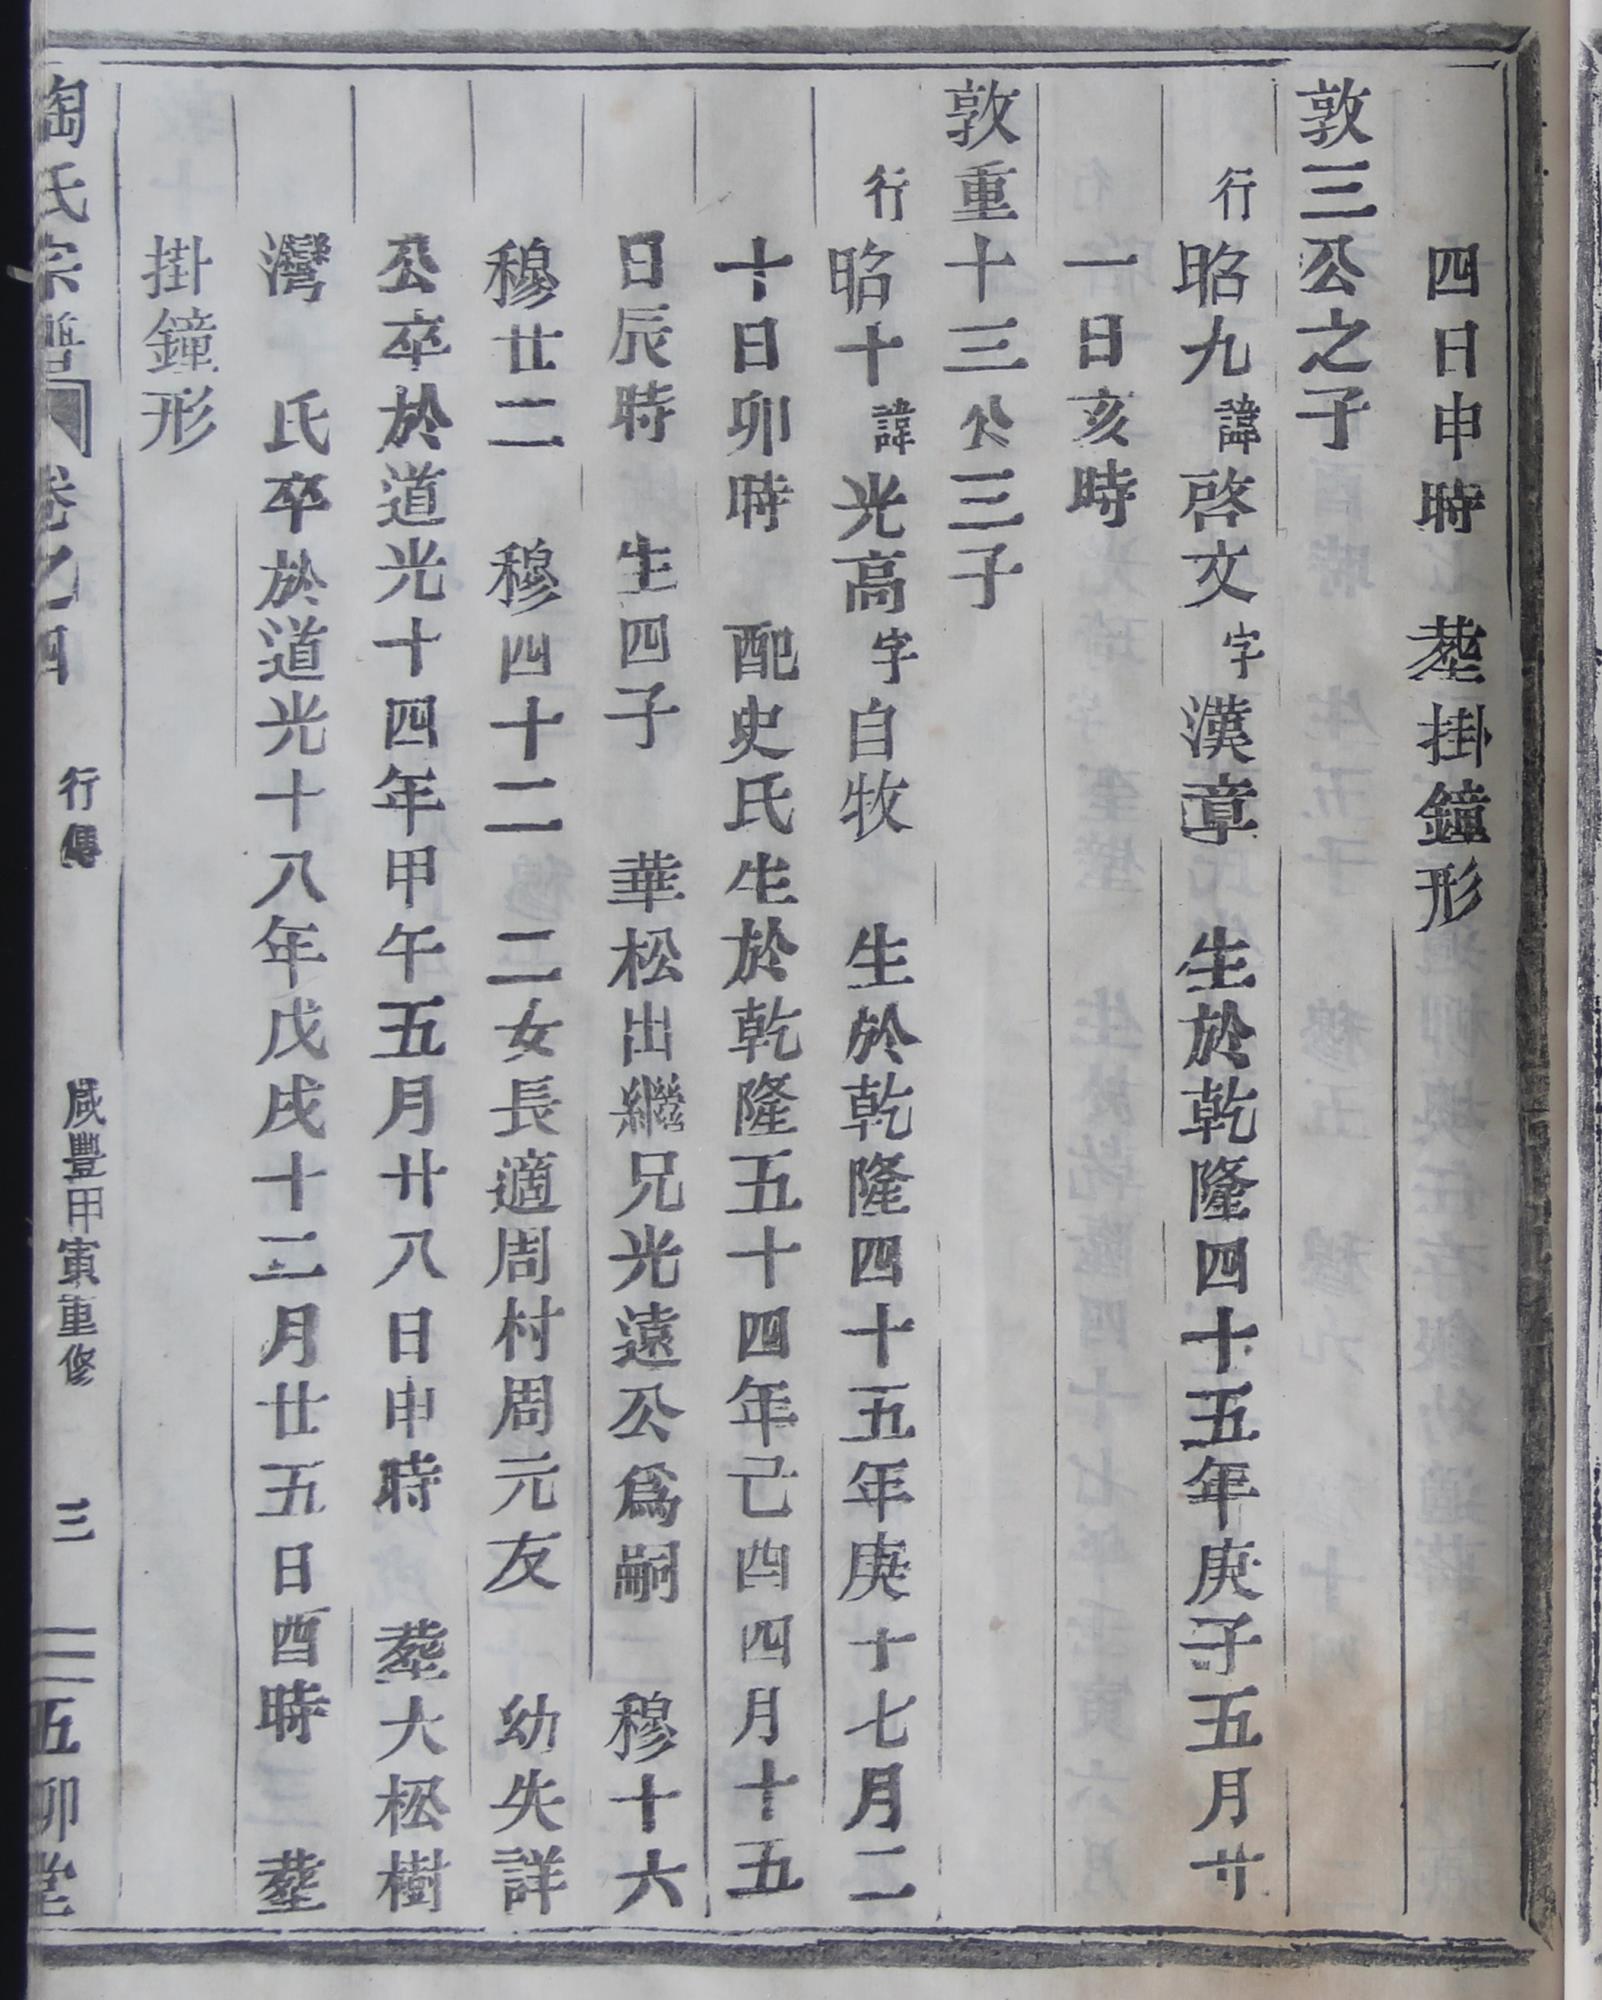 四日申時　塟掛鐘形
敦三公之子
行昭九諱啓文字漢章　生於乾隆四十五年庚子五月廿
一日亥時
敦重十三公三子
行昭十諱光高字自牧　生於乾隆四十五年庚十七月二
十日卯時　配史氏生於乾隆五十四年己酉四月十五
日辰時　生四子　華松出繼兄光遠公爲嗣　穆十六
穆廿二　穆四十二　二女長適周村周元友　幼失詳
公卒於道光十四年甲午五月廿八日申時　塟大松樹
灣　氏卒於道光十八年戊戌十二月廿五日酉時　塟
掛鐘形
陶氏宗譜　卷之四　行傳　咸豐甲寅重修　三　五柳堂